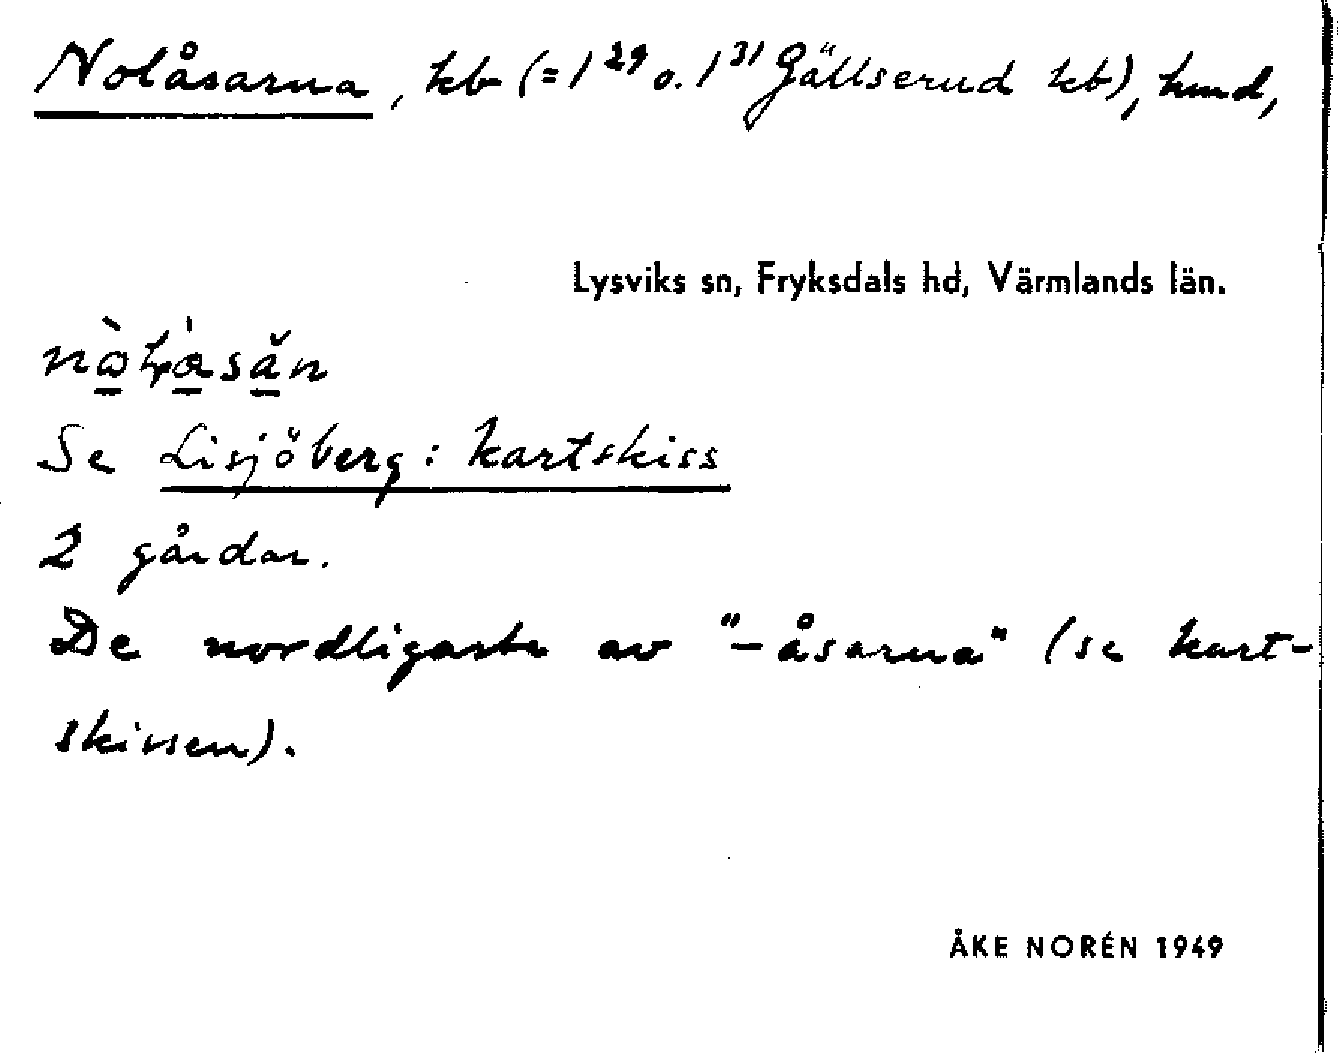 Nolåsarna, kb (= 1²⁹ o. 1³¹ Gällserud kb), hmd,
Lysviks sn, Fryksdals hd, Värmlands län.
Se Lisjöberg: kartskiss
2 gårdar.
De nordligaste av "-åsarna" (se kart-
skissen).
ÅKE NORÉN 1949